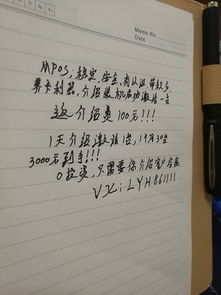 MEMO NO.
Date
MPOS,稳定,安全,有认证,带积分
养卡利器,介绍装机成功激活一台
返介绍费100元!!!
1天介绍激活1台,1个月30台
3000元到手!!!
0投资,只需要你介绍客户
VX:LYH861111